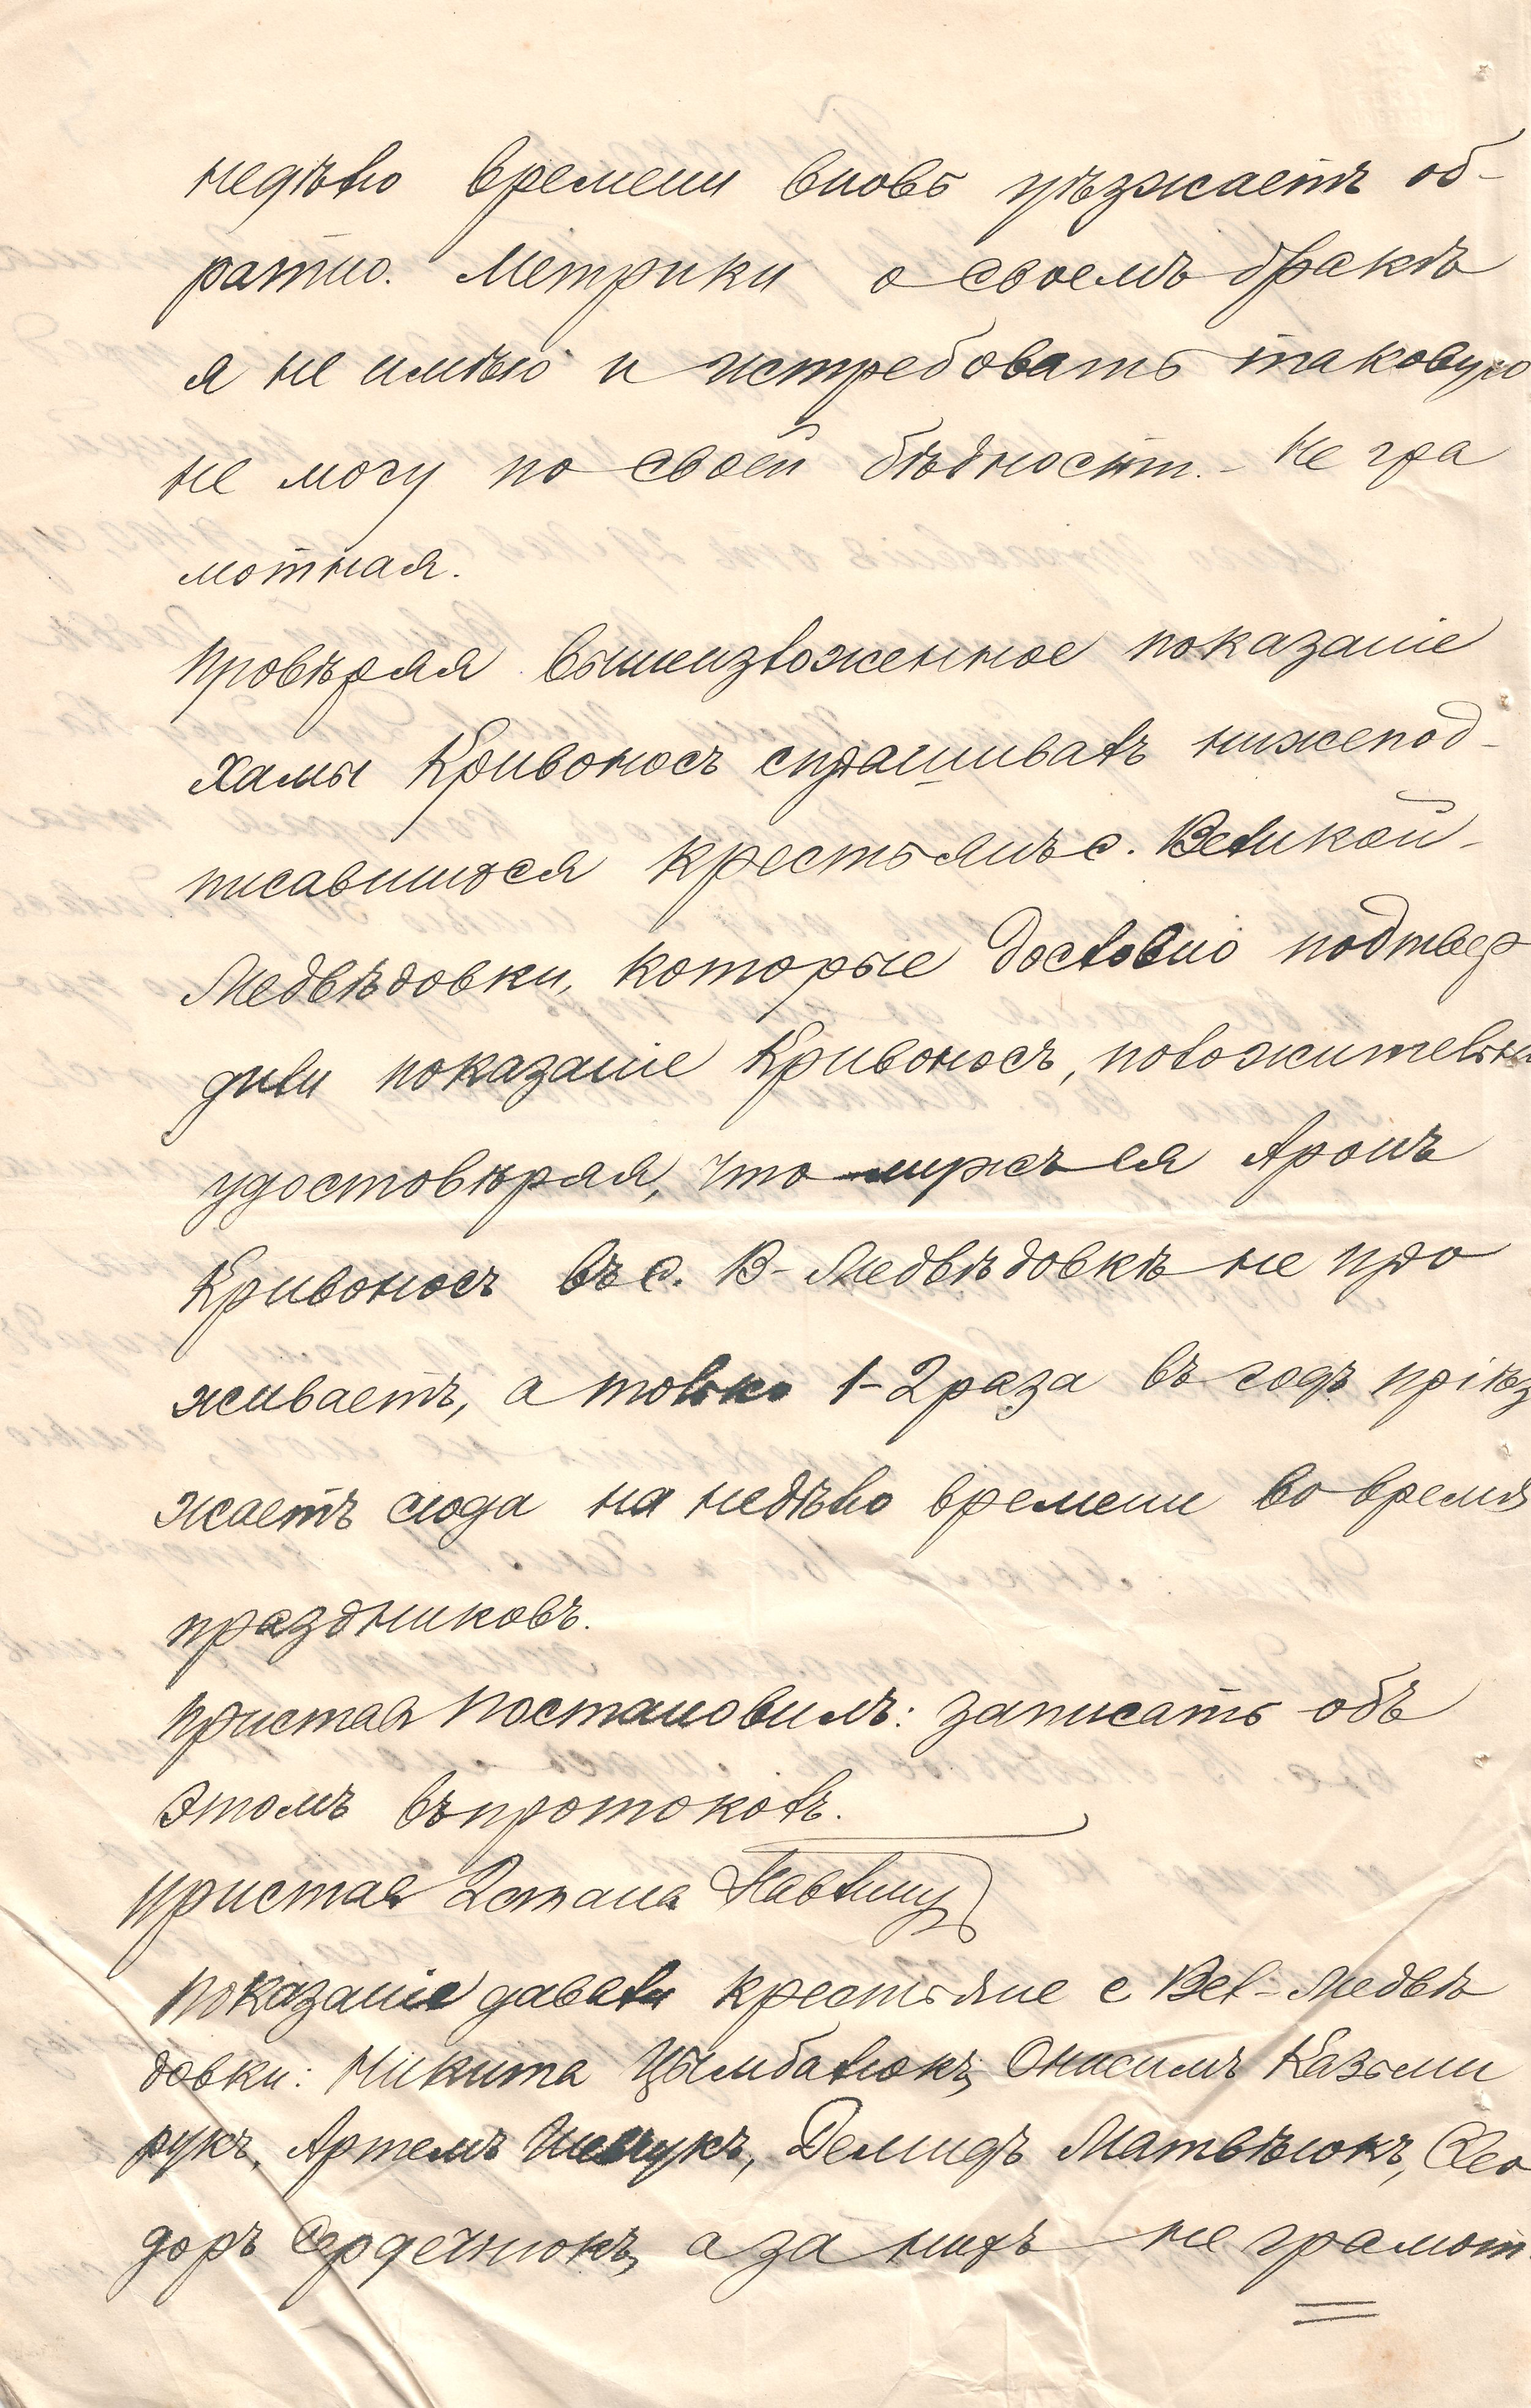 недѣлю времени вновь уѣзжаетъ об-
ратно. Метрики о своемъ бракѣ
я не имѣю и истребовать таковую
не могу по своей бѣдност. - Не гра
мотная.
Провѣряя вышеизложенное показаніе
Хамы Кривоносъ спрашивалъ нижепод-
писавшихся крестьянъ с. Великой-
Медвѣдовки, которые дословно подтвер
дили показаніе Кривоносъ, положительно
удостовѣряя, что мужъ ея Аронъ
Кривоносъ въ с. В-Медвѣдовкѣ не про
живаетъ, а только 1-2 раза въ годъ пріѣз
жаетъ сюда на недѣлю времени во время
праздниковъ.
Приставъ постановилъ: записать объ
этомъ въ протоколъ.
Приставъ 2 стана
Показаніе давали крестьяне с Вел-Медвѣ
довки: Никита Цымбалюкъ, Онисимъ Казьми
рукъ, Артемъ Шевчукъ, Демидъ Матвѣюкъ, Ѳео
доръ Сердечнюкъ, а за нихъ не грамот.